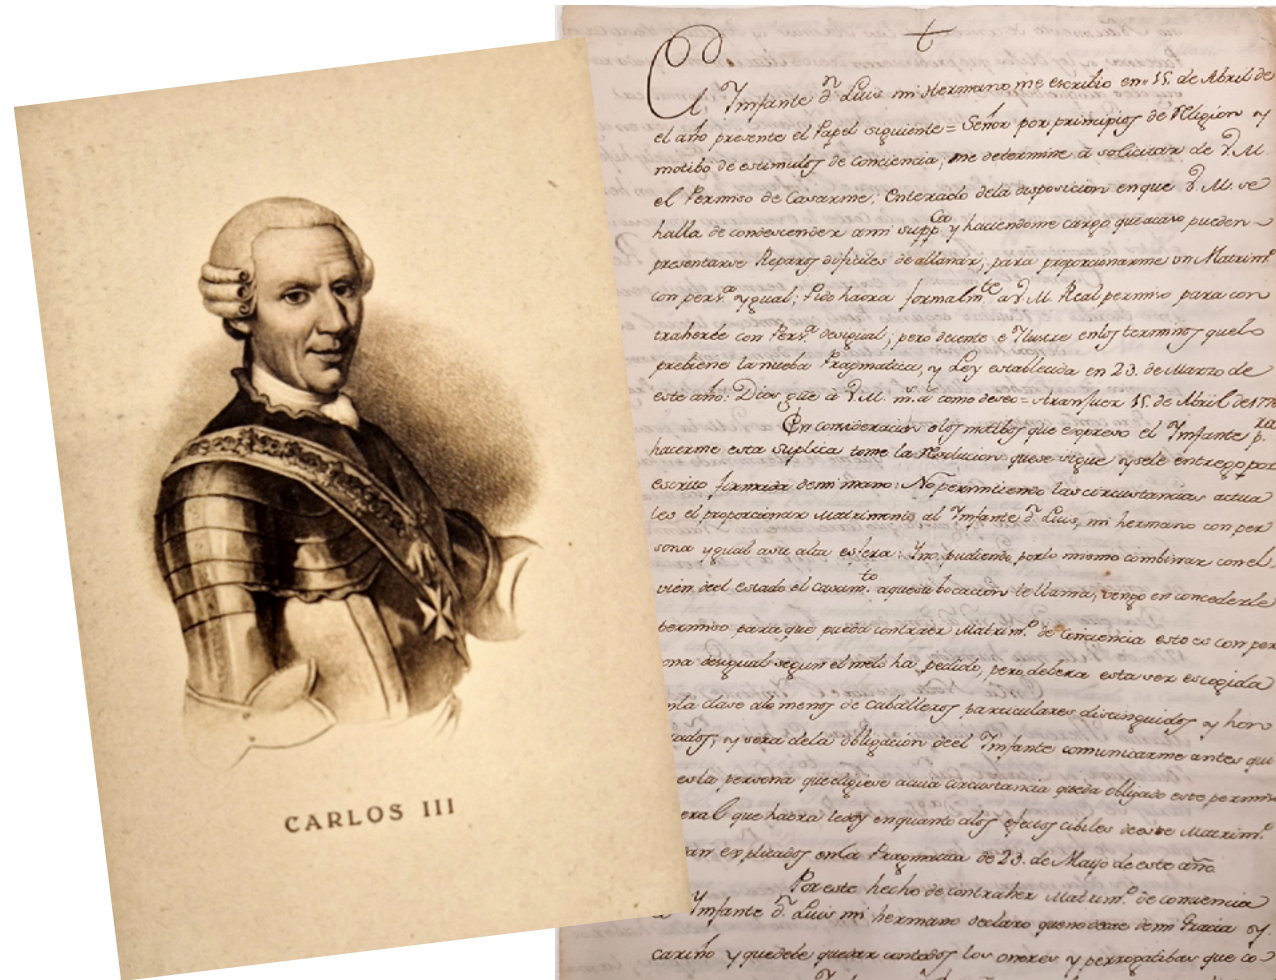 CARLOS III
El Infante dn. Luis mi Hermano, me escribio en 15. de Abril de
el año presente el Papel siguiente = Señor por principios de Religion y
motibo de estimulos de conciencia, me determine à solicitar de V.M.
el Permiso de Casarme; Enterado dela disposicion en que V.M. se
halla de condescender a mi suppca. y haciendome cargo que acaso pueden
presentarse Reparos dificiles de allanar, para proporcionarme un Matrimo.
con persa. ygual; Pido haora formalmte. a V.M. Real permiso para con
traherle con Persa. desigual; pero decente e Ylustre en los terminos que lo
prebiene la nueba Pragmatica, y Ley establecida en 23. de Marzo de
este año: Dios gue a V.M. ms. as. como deseo = Aranjuez 15. de Abril de 1776
En consideracion a los motibos que expreso el Infante pra.
hacerme esta Suplica tome la Resolucion que se sigue y se le entrego por
escrito firmada de mi mano: No permitiendo las circustancias actua
les el proporcionar Matrimonio al Infante dn. Luis, mi hermano con per
sona ygual a su alta esfera: Y no pudiendo por lo mismo combinar con el
vien del estado el Casamto. a que su bocacion le llama, vengo en concederle
permiso para que pueda contraer Matrimo. de Conciencia esto es con per
ona desigual segun el melo ha pedido, pero debera esta ser escogida
nla clase alo menos de Caballeros particulares distinguidos y hon
ados; y sera dela obligacion del Infante comunicarme antes qui
es la persona que eligiese a cuia circustancia queda obligado este permiso
eral que habra leido en quanto alos efectos cibiles de este Matrimo.
an explicados en la Pragmatica de 23. de Mayo de este año.
Por este hecho de contraher Matrimo. de conciencia
Infante dn. Luis mi hermano declaro que no decae de mi Gracia y
cariño y que debe quedar con todos los onores y perrogatibas que co